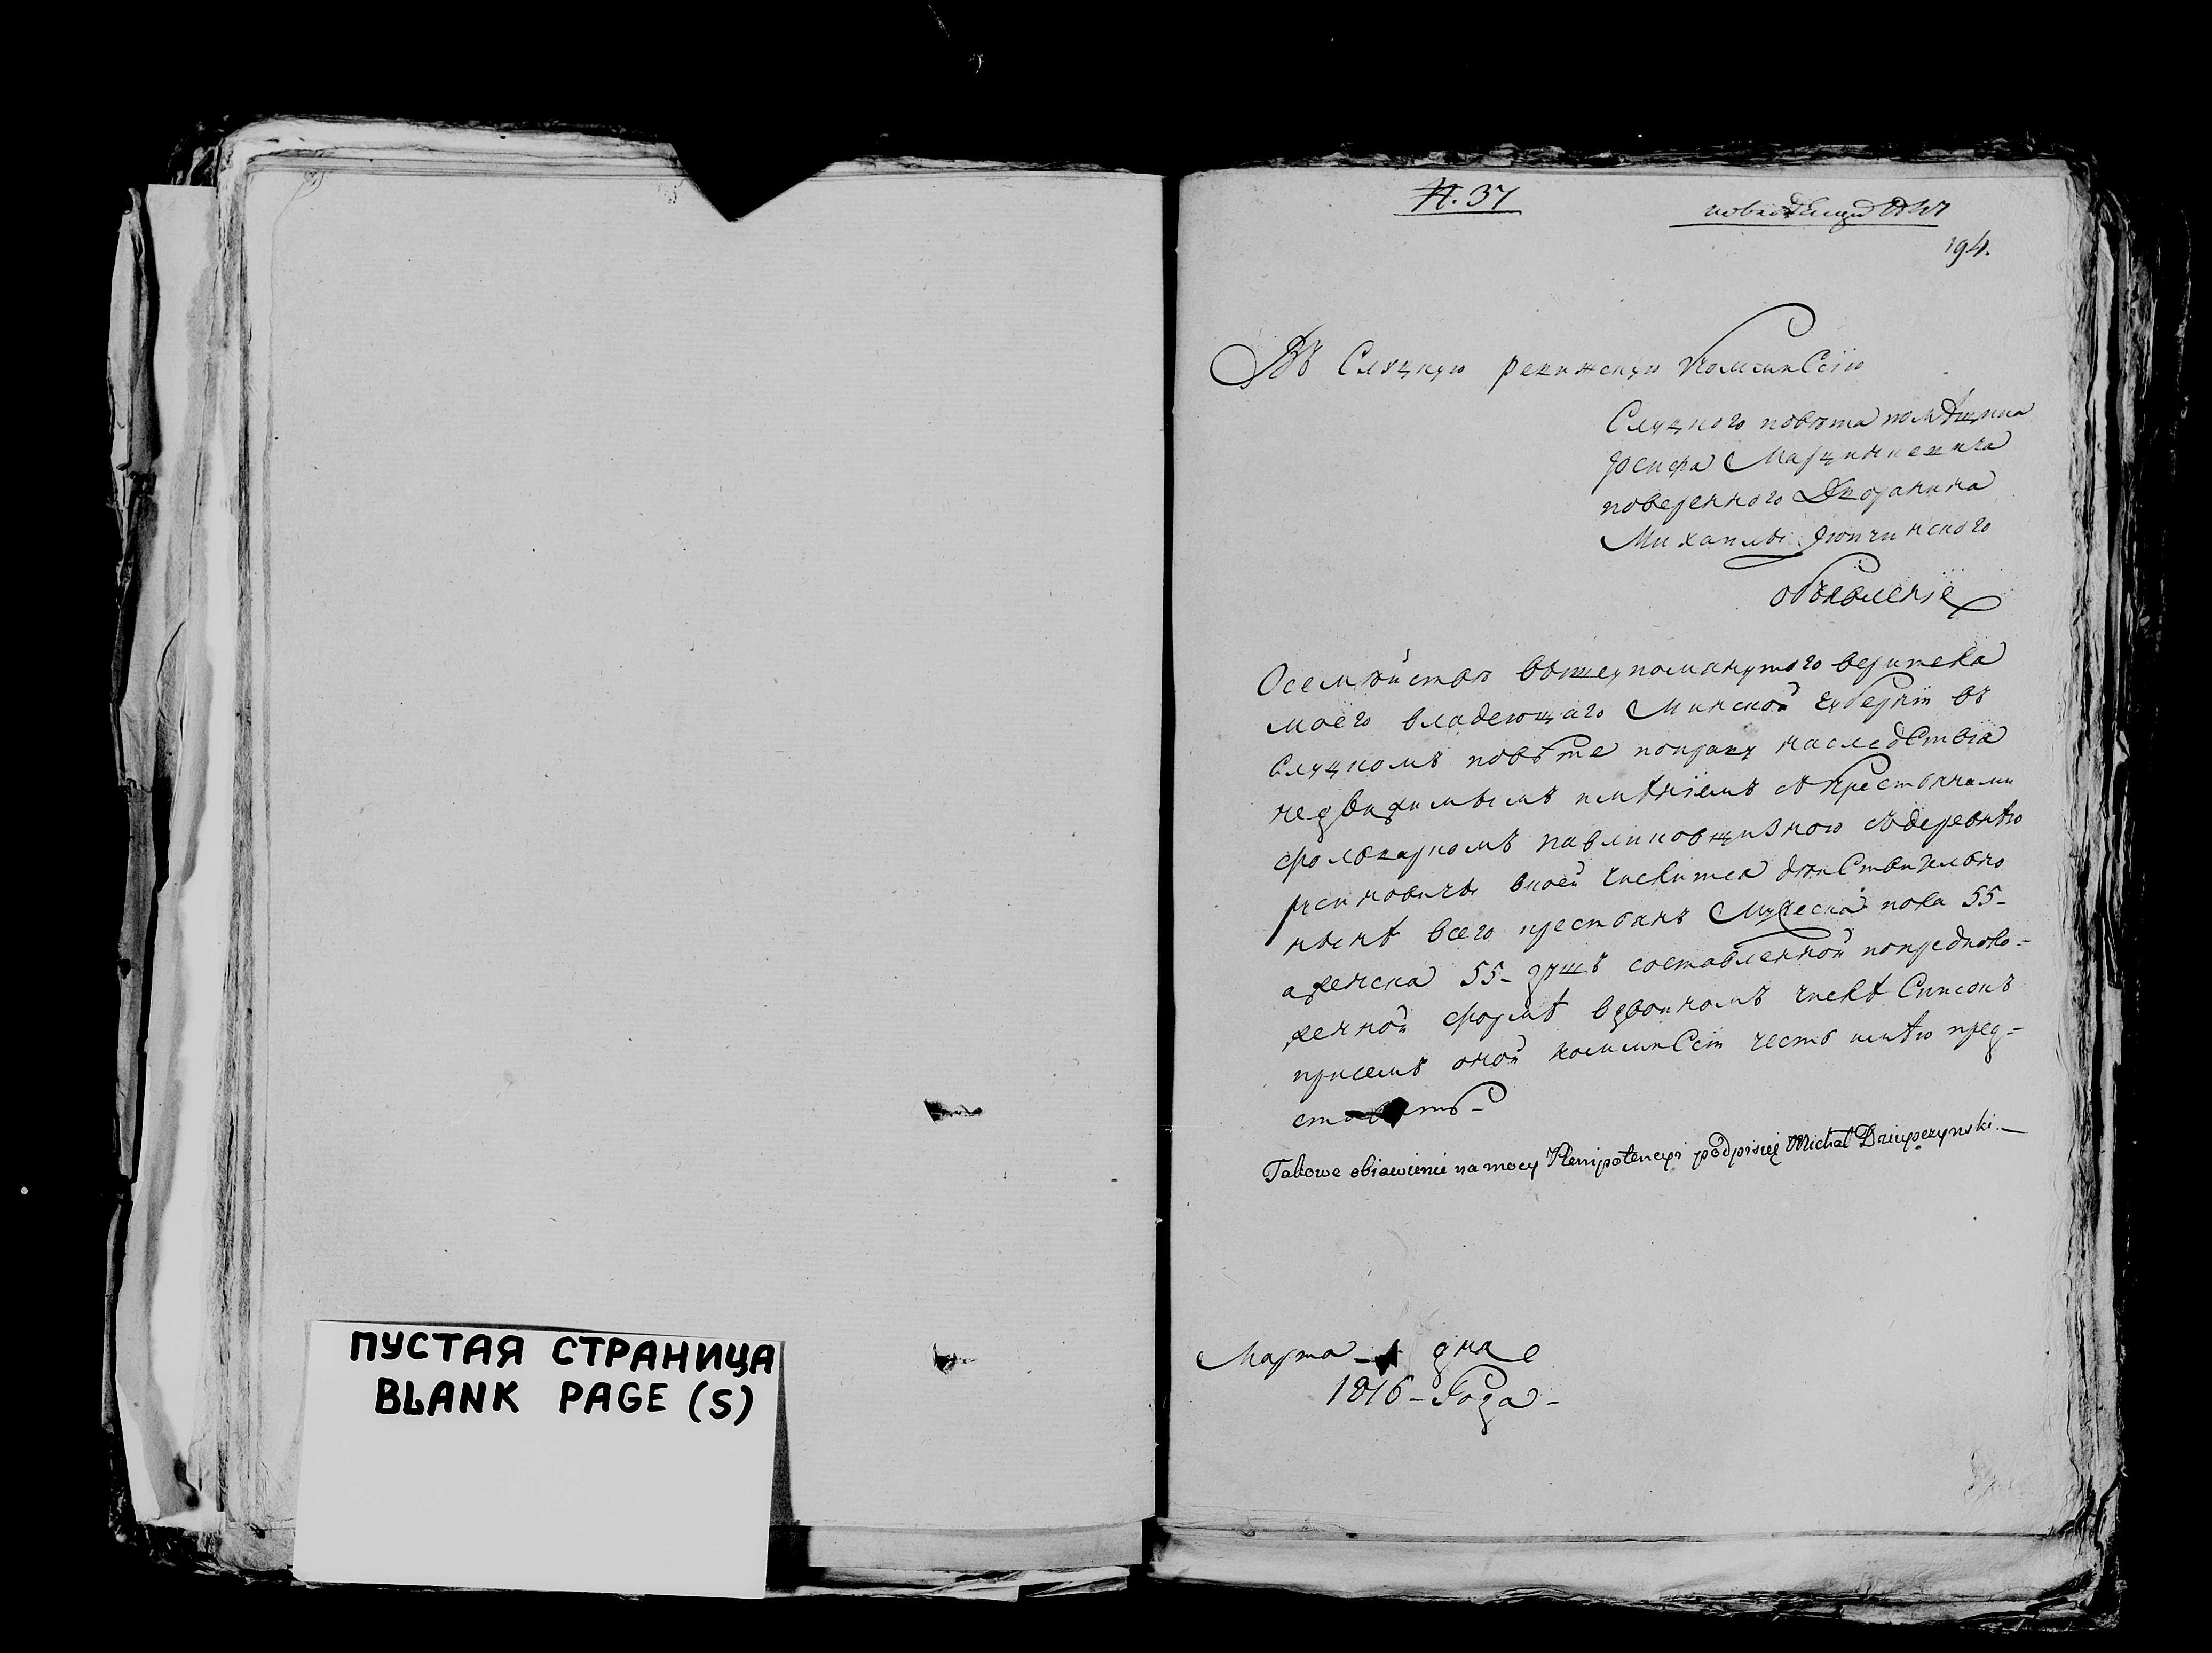 ПУСТАЯ СТРАНИЦА
BLANK PAGE (S)
N. 37
194.
Въ Слуцкую ревижскую Коммисcію
Слуцкого повѣта помѣщика
Іосифа Марцинкевича
поверенного Дворанина
Михаила
объявленіе
О семѣйствѣ вышеупоманутого верителя
моего владеющаго Минской губерніи въ
Слуцкомъ повѣте поправу наследствія
недвижимымъ имѣніемъ съ Крестьянами
фольваркомъ Павликовщизною съ деревнѣю
в коей числится дѣйствительно
нынѣ всего крестьянъ Мужеска пола 55-
а женска 55- душъ составленной попредполо-
женной формѣ в двойномъ числѣ Списокъ
присемъ оной коммисcіи честь имѣю пред-
ставить-
Takowe obiawienie na mocy Plenipotencyi podpisuię Michał Dziupczynski.
Марта 1 дня
1816 - Года -